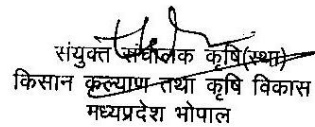 संयुक्त संचालक कृषि(स्था)
किसान कल्याण तथा कृषि विकास
मध्यप्रदेश भोपाल